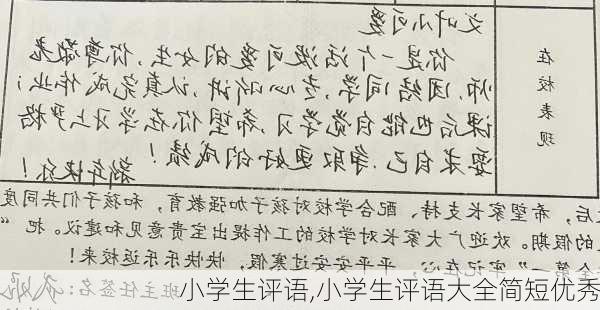 文叶小可爱
你是一个活泼可爱的女生,你尊敬老
师,团结同学,专心听讲,认真完成作业;
课后也能自觉学习,希望你在学习上严格
要求自己,争取更好的成绩!
新年快乐!
在校表现
后,希望家长支持、配合学校对孩子加强教育,和孩子们共同度
的假期。欢迎广大家长对学校的工作提出宝贵意见和建议。把“
全第一”牢记在心,平平安安过寒假,快快乐乐返校来!
班主任签名:
小学生评语,小学生评语大全简短优秀